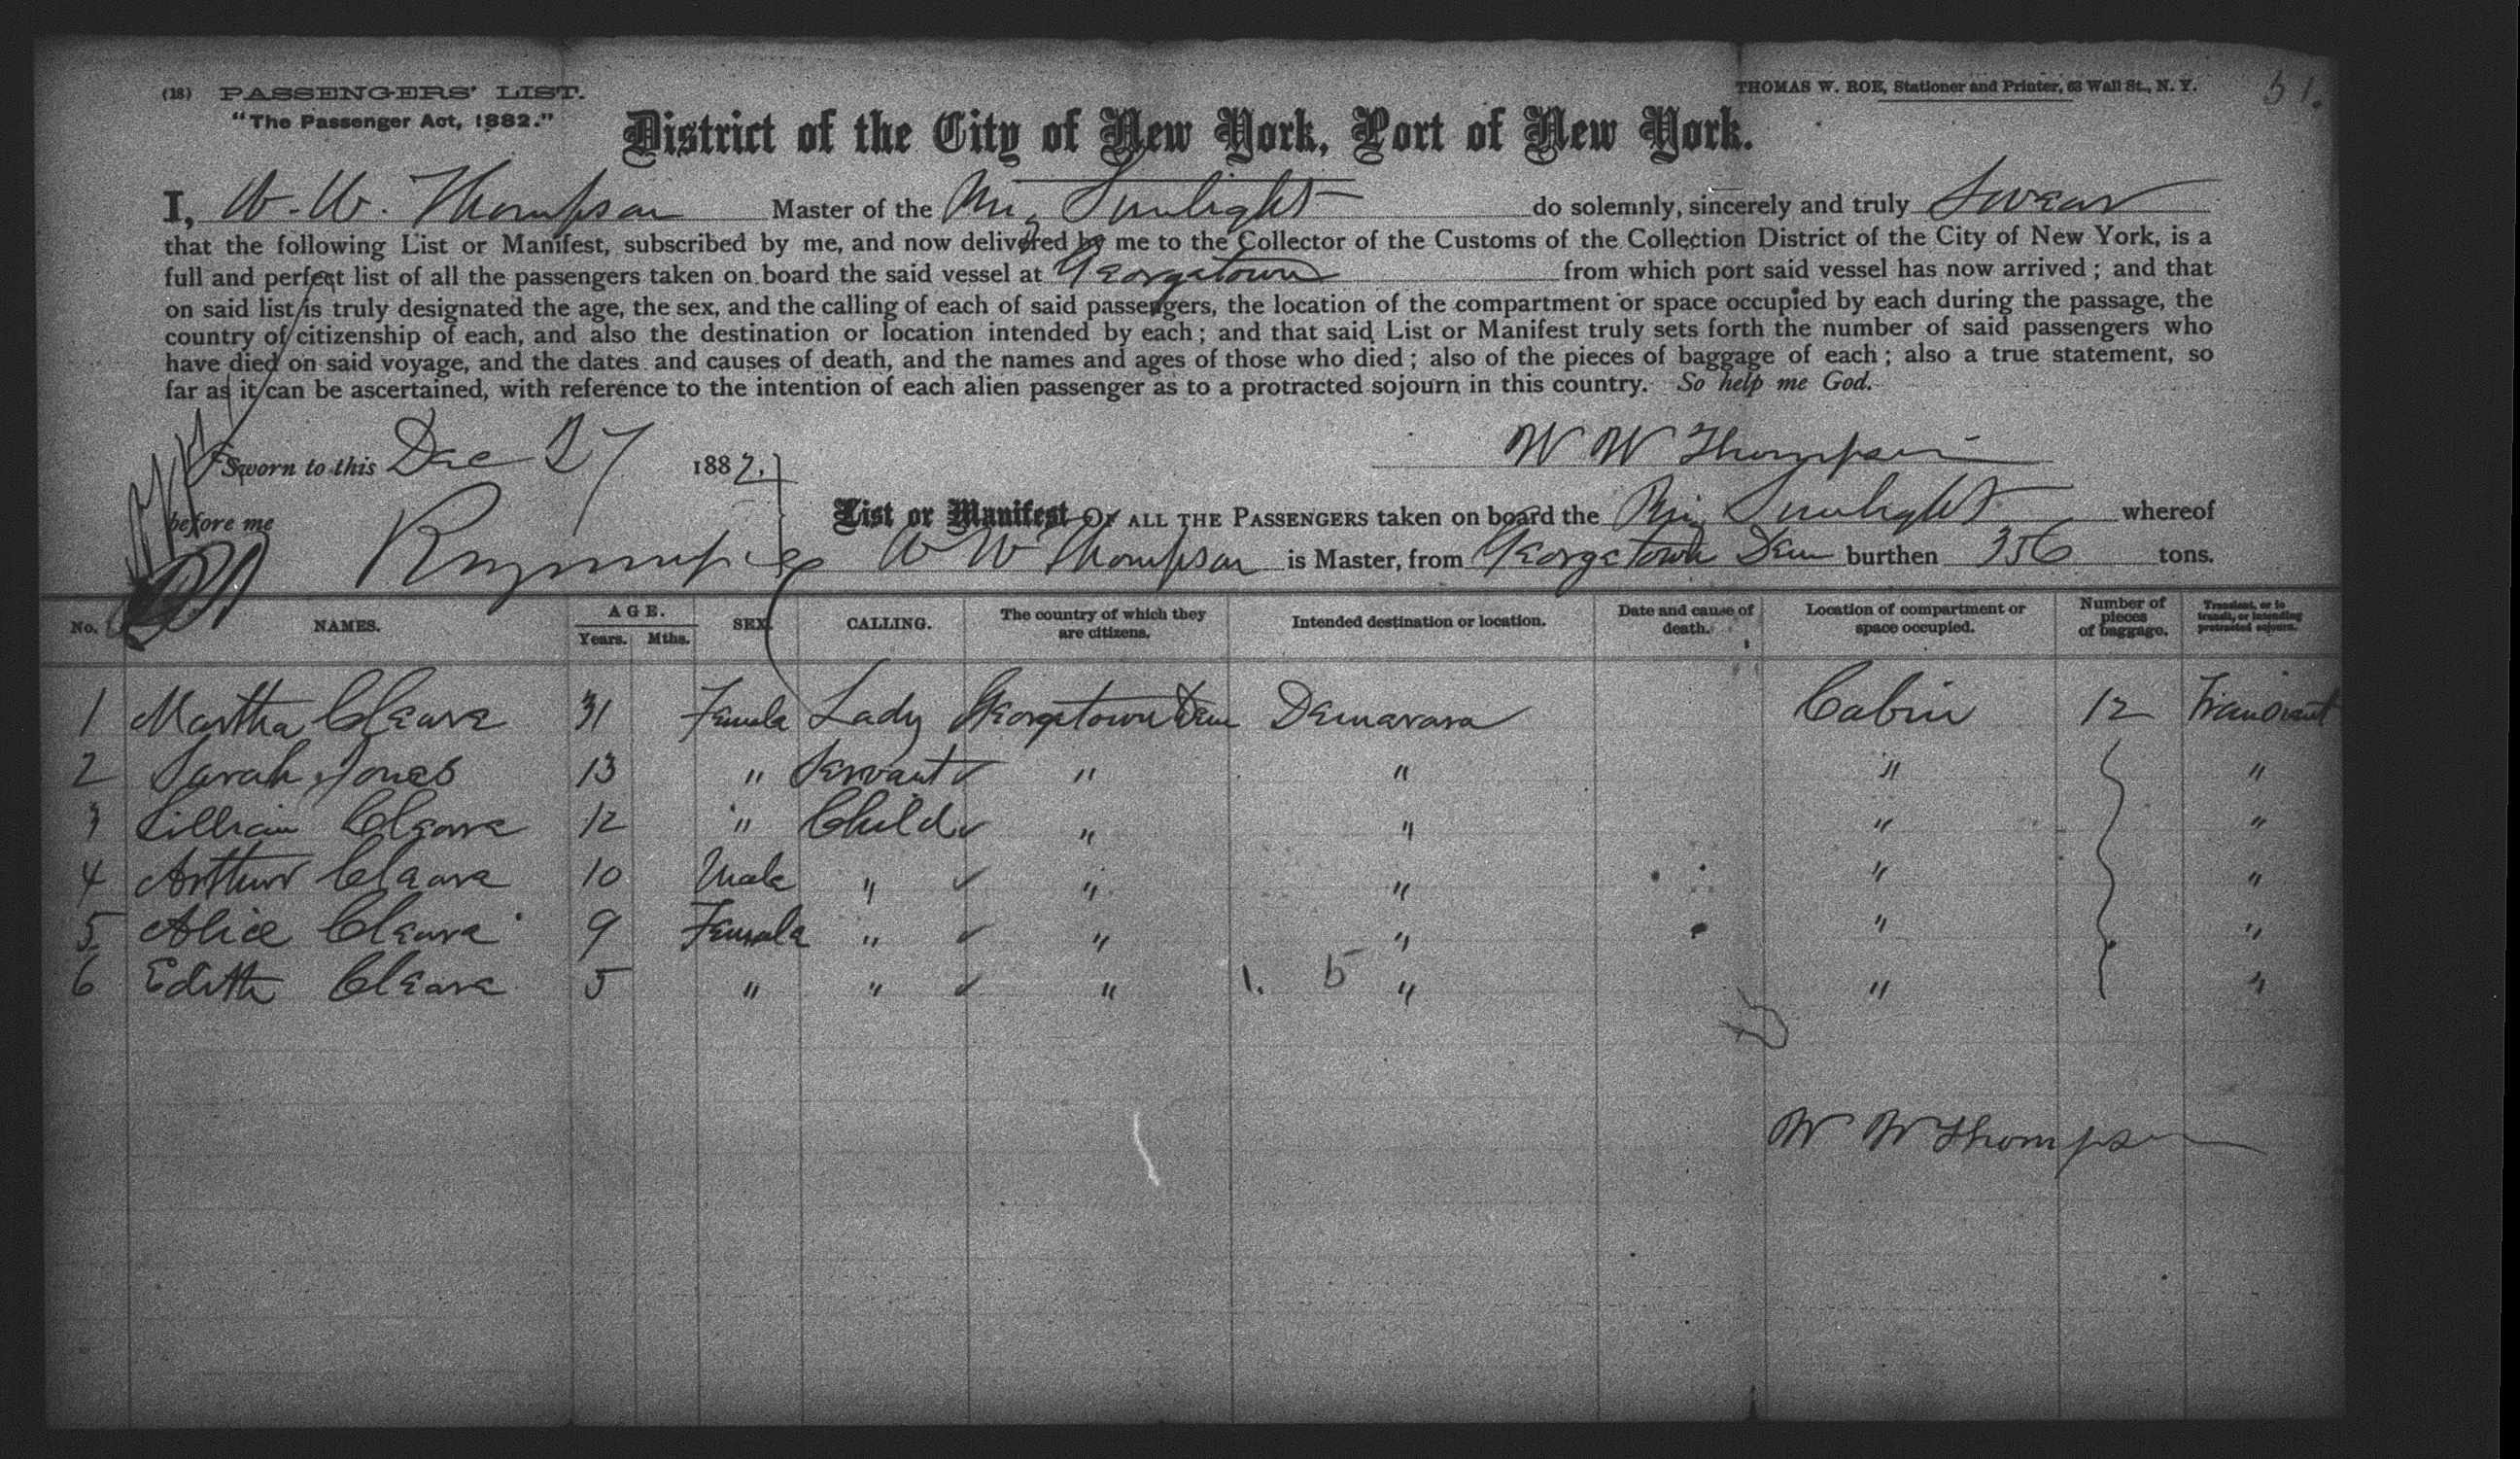 (18) PASSENGERS' LIST.
"The Passenger Act, 1882."
THOMAS W. ROE, Stationer and Printer, 63 Wall St., N. Y.
51.
District of the City of New York, Port of New York.
I, W. W. Thompson Master of the Sunlight do solemnly, sincerely and truly Swear
that the following List or Manifest, subscribed by me, and now delivered by me to the Collector of the Customs of the Collection District of the City of New York, is a
full and perfect list of all the passengers taken on board the said vessel at Georgetown from which port said vessel has now arrived; and that
on said list is truly designated the age, the sex, and the calling of each of said passengers, the location of the compartment or space occupied by each during the passage, the
country of citizenship of each, and also the destination or location intended by each; and that said List or Manifest truly sets forth the number of said passengers who
have died on said voyage, and the dates and causes of death, and the names and ages of those who died; also of the pieces of baggage of each; also a true statement, so
far as it can be ascertained, with reference to the intention of each alien passenger as to a protracted sojourn in this country. So help me God.
Sworn to this Dec 27 1882.
W W Thompson
before me
List or Manifest OF ALL THE PASSENGERS taken on board the Sunlight whereof
W W Thompson is Master, from Georgetown Dem burthen 356 tons.
No. NAMES. AGE. Years. Mths. SEX. CALLING. The country of which they are citizens. Intended destination or location. Date and cause of death. Location of compartment or space occupied. Number of pieces of baggage. Transient, or in transit, or intending protracted sojourn.
1 Martha Cleare 31 Female Lady Georgetown Dem Demarara Cabin 12 Transient
2 Sarah Jones 13 " Servant ✓ " " " "
3 Lillian Cleare 12 " Child ✓ " " " "
4 Arthur Cleare 10 Male " ✓ " " " "
5 Alice Cleare 9 Female " ✓ " " " "
6 Edith Cleare 5 " " ✓ " 1. 5 " " "
W W Thompson